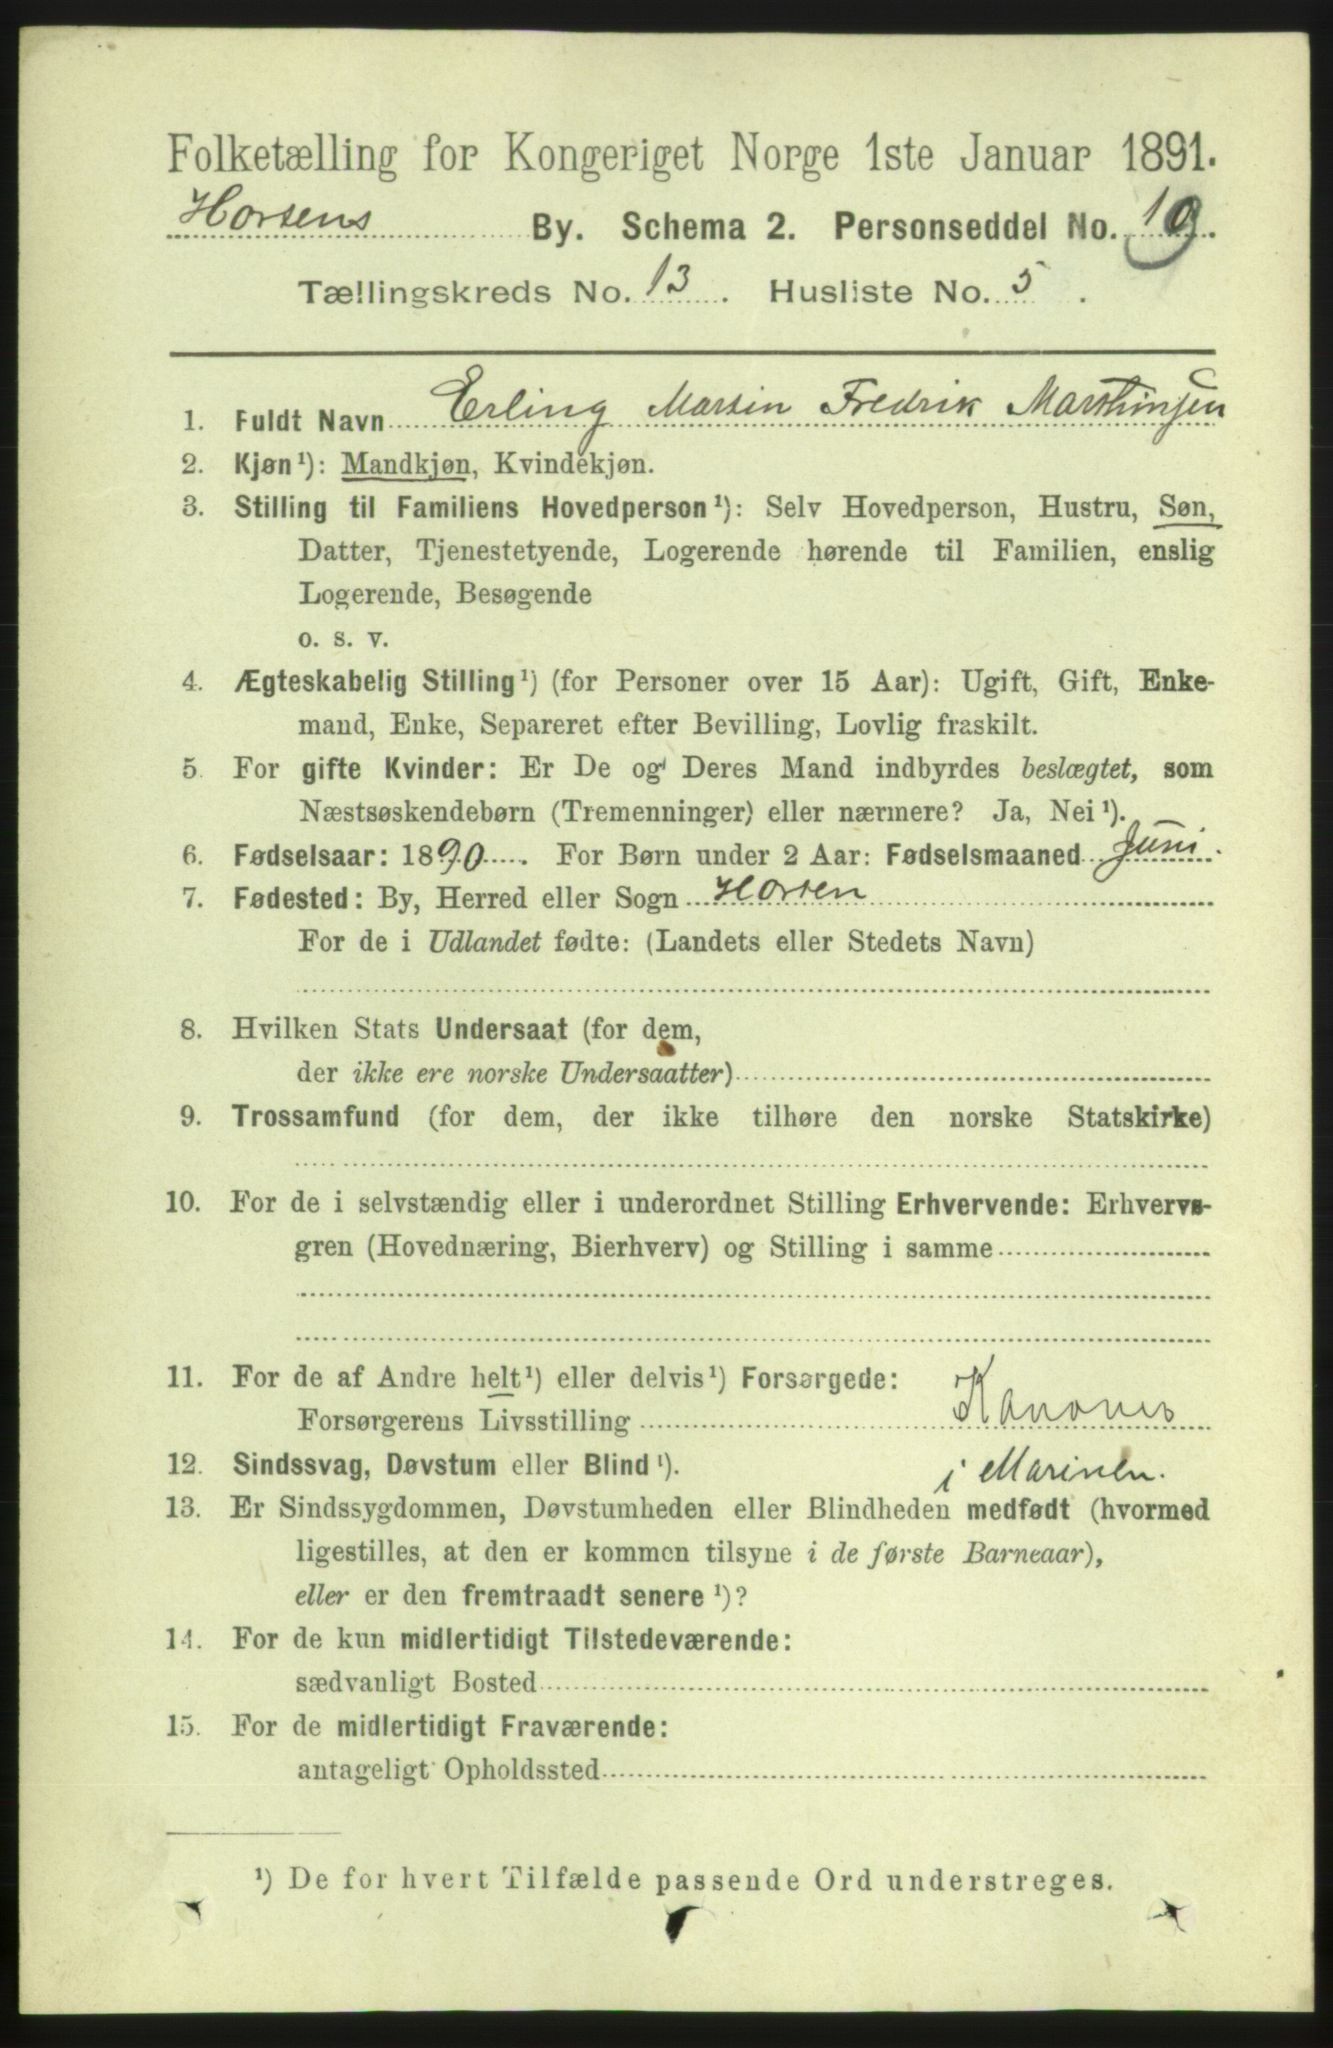 Folketælling for Kongeriget Norge 1ste Januar 1891.
Hortens By. Schema 2. Personseddel No. 10.
Tællingskreds No. 13. Husliste No. 5.
1. Fuldt Navn Erling Martin Fredrik Marthinsen
2. Kjøn¹): Mandkjøn, Kvindekjøn.
3. Stilling til Familiens Hovedperson¹): Selv Hovedperson, Hustru, Søn,
Datter, Tjenestetyende, Logerende hørende til Familien, enslig
Logerende, Besøgende
o. s. v.
4. Ægteskabelig Stilling¹) (for Personer over 15 Aar): Ugift, Gift, Enke-
mand, Enke, Separeret efter Bevilling, Lovlig fraskilt.
5. For gifte Kvinder: Er De og Deres Mand indbyrdes beslægtet, som
Næstsøskendebørn (Tremenninger) eller nærmere? Ja, Nei¹).
6. Fødselsaar: 1890. For Børn under 2 Aar: Fødselsmaaned Juni.
7. Fødested: By, Herred eller Sogn Horten
For de i Udlandet fødte: (Landets eller Stedets Navn)
8. Hvilken Stats Undersaat (for dem,
der ikke ere norske Undersaatter)
9. Trossamfund (for dem, der ikke tilhøre den norske Statskirke)
10. For de i selvstændig eller i underordnet Stilling Erhvervende: Erhvervs-
gren (Hovednæring, Bierhverv) og Stilling i samme
11. For de af Andre helt¹) eller delvis¹) Forsørgede:
Forsørgerens Livsstilling Kanoner
12. Sindssvag, Døvstum eller Blind¹). i Marinen.
13. Er Sindssygdommen, Døvstumheden eller Blindheden medfødt (hvormed
ligestilles, at den er kommen tilsyne i de første Barneaar),
eller er den fremtraadt senere¹)?
14. For de kun midlertidigt Tilstedeværende:
sædvanligt Bosted
15. For de midlertidigt Fraværende:
antageligt Opholdssted
¹) De for hvert Tilfælde passende Ord understreges.